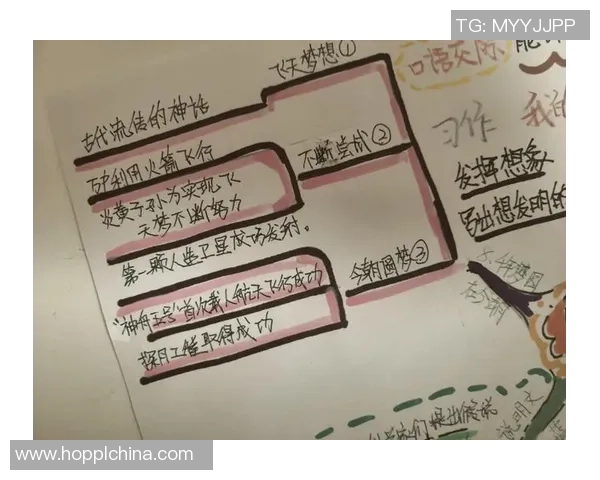 TG: MYYJJPP
飞天梦想①
古代流传的神话
万户利用火箭飞行
不断尝试②
炎黄子孙为实现飞
天梦不断努力
第一颗人造卫星成功发射。
今朝圆梦③
“神舟五号”首次载人航天飞行成功
探月工程取得成功
口语交际
习作
我的
发挥想象
写出想发明的
提出假说
说明文
www.hopplchina.com